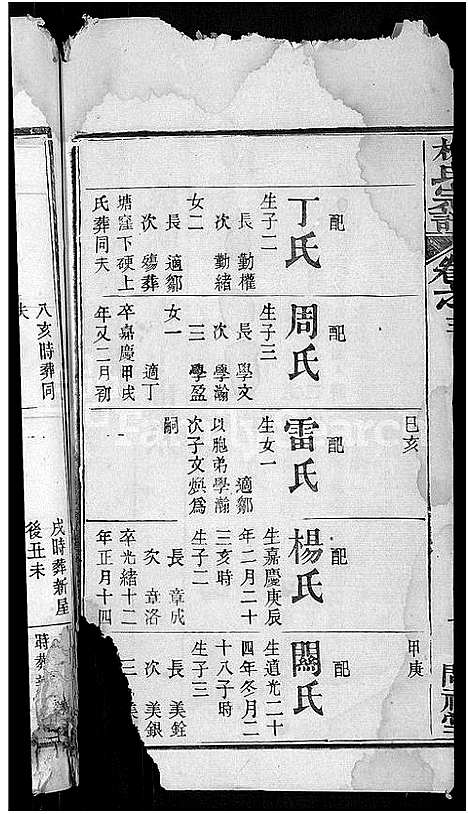 卷之三
配
丁氏
生子二
長 勤權
次 勤緒
女二
長 適鄒
次 殤葬
塘窪下硬上
氏葬同夫
配
周氏
生子三
長 學文
次 學瀚
三 學盈
女一
適丁
卒嘉慶甲戌
年又二月初
巳亥
配
雷氏
生女一
適鄒
以胞弟學瀚
次子文煥為
嗣
配
楊氏
生嘉慶庚辰
年二月二十
三亥時
生子二
長 章成
次 章洛
卒光緒十二
年正月十四
甲庚
配
闕氏
生道光二十
四年冬月二
十八子時
生子三
長 美銓
次 美銀
三 美
八亥時葬同
夫
戌時葬新屋
後丑未
時葬